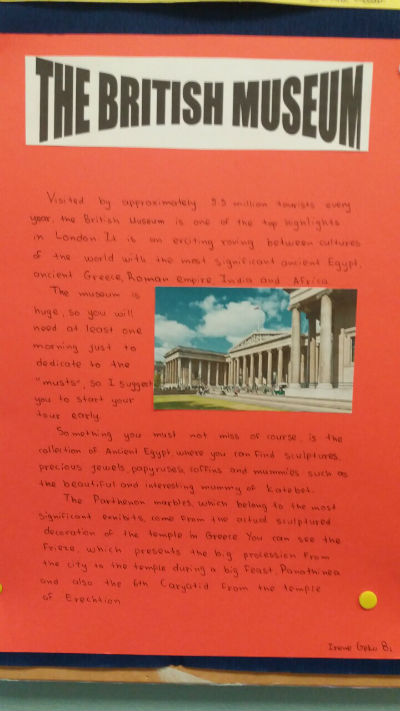 THE BRITISH MUSEUM
Visited by approximately 5.5 million tourists every
year, the British Museum is one of the top highlights
in London. It is an exciting roving between cultures
of the world with the most significant ancient Egypt,
ancient Greece, Roman empire, India and Africa.
The museum is
huge, so you will
need at least one
morning just to
dedicate to the
"musts", so I suggest
you to start your
tour early.
Something you must not miss of course, is the
collection of Ancient Egypt, where you can find sculptures,
precious jewels, papyruses, coffins and mummies such as
the beautiful and interesting mummy of Katebet.
The Parthenon marbles, which belong to the most
significant exhibits, come from the actual sculptured
decoration of the temple in Greece You can see the
Frieze, which presents the big procession from
the city to the temple during a big feast, Panathinea
and also the 6th Caryatid from the temple
of Erechtion
Irene Geka B1